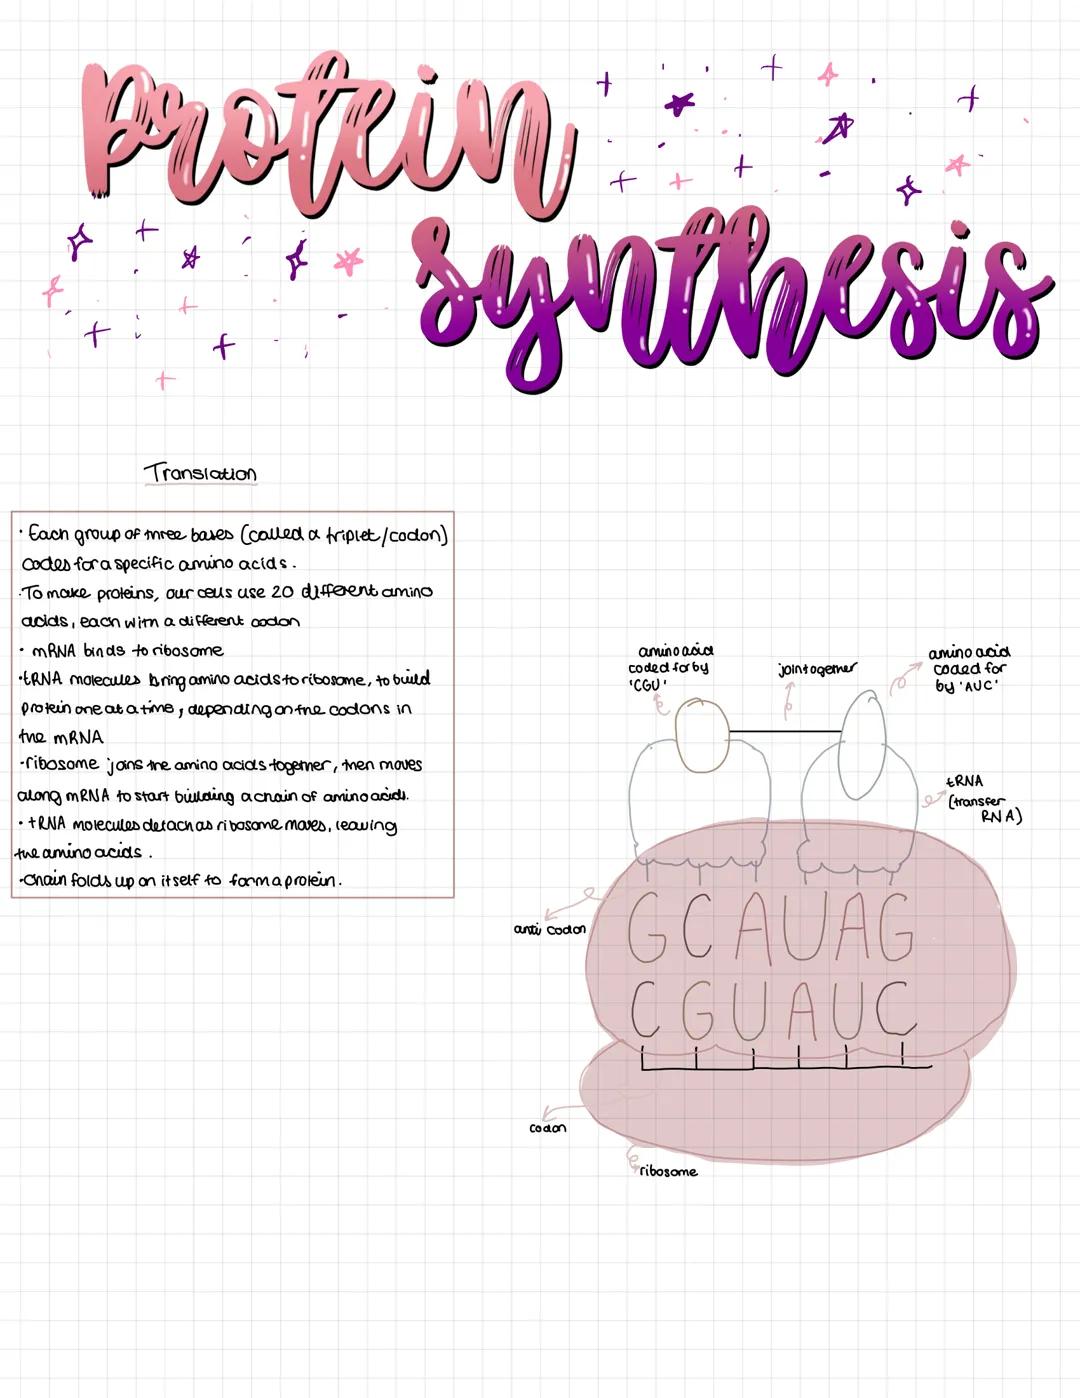 Protein
synthesis
Translation
· Each group of three bases (called a triplet/codon)
codes for a specific amino acids.
· To make proteins, our cells use 20 different amino
acids, each with a different codon
· mRNA binds to ribosome
· tRNA molecules bring amino acids to ribosome, to build
protein one at a time, depending on the codons in
the mRNA
· ribosome joins the amino acids together, then moves
along mRNA to start building a chain of amino acids.
· tRNA molecules detach as ribosome moves, leaving
the amino acids.
· Chain folds up on itself to form a protein.
amino acid
coded for by
'CGU'
join together
amino acid
coded for
by 'AUC'
tRNA
(transfer
RNA)
anti codon
GCAUAG
CGUAUC
codon
ribosome